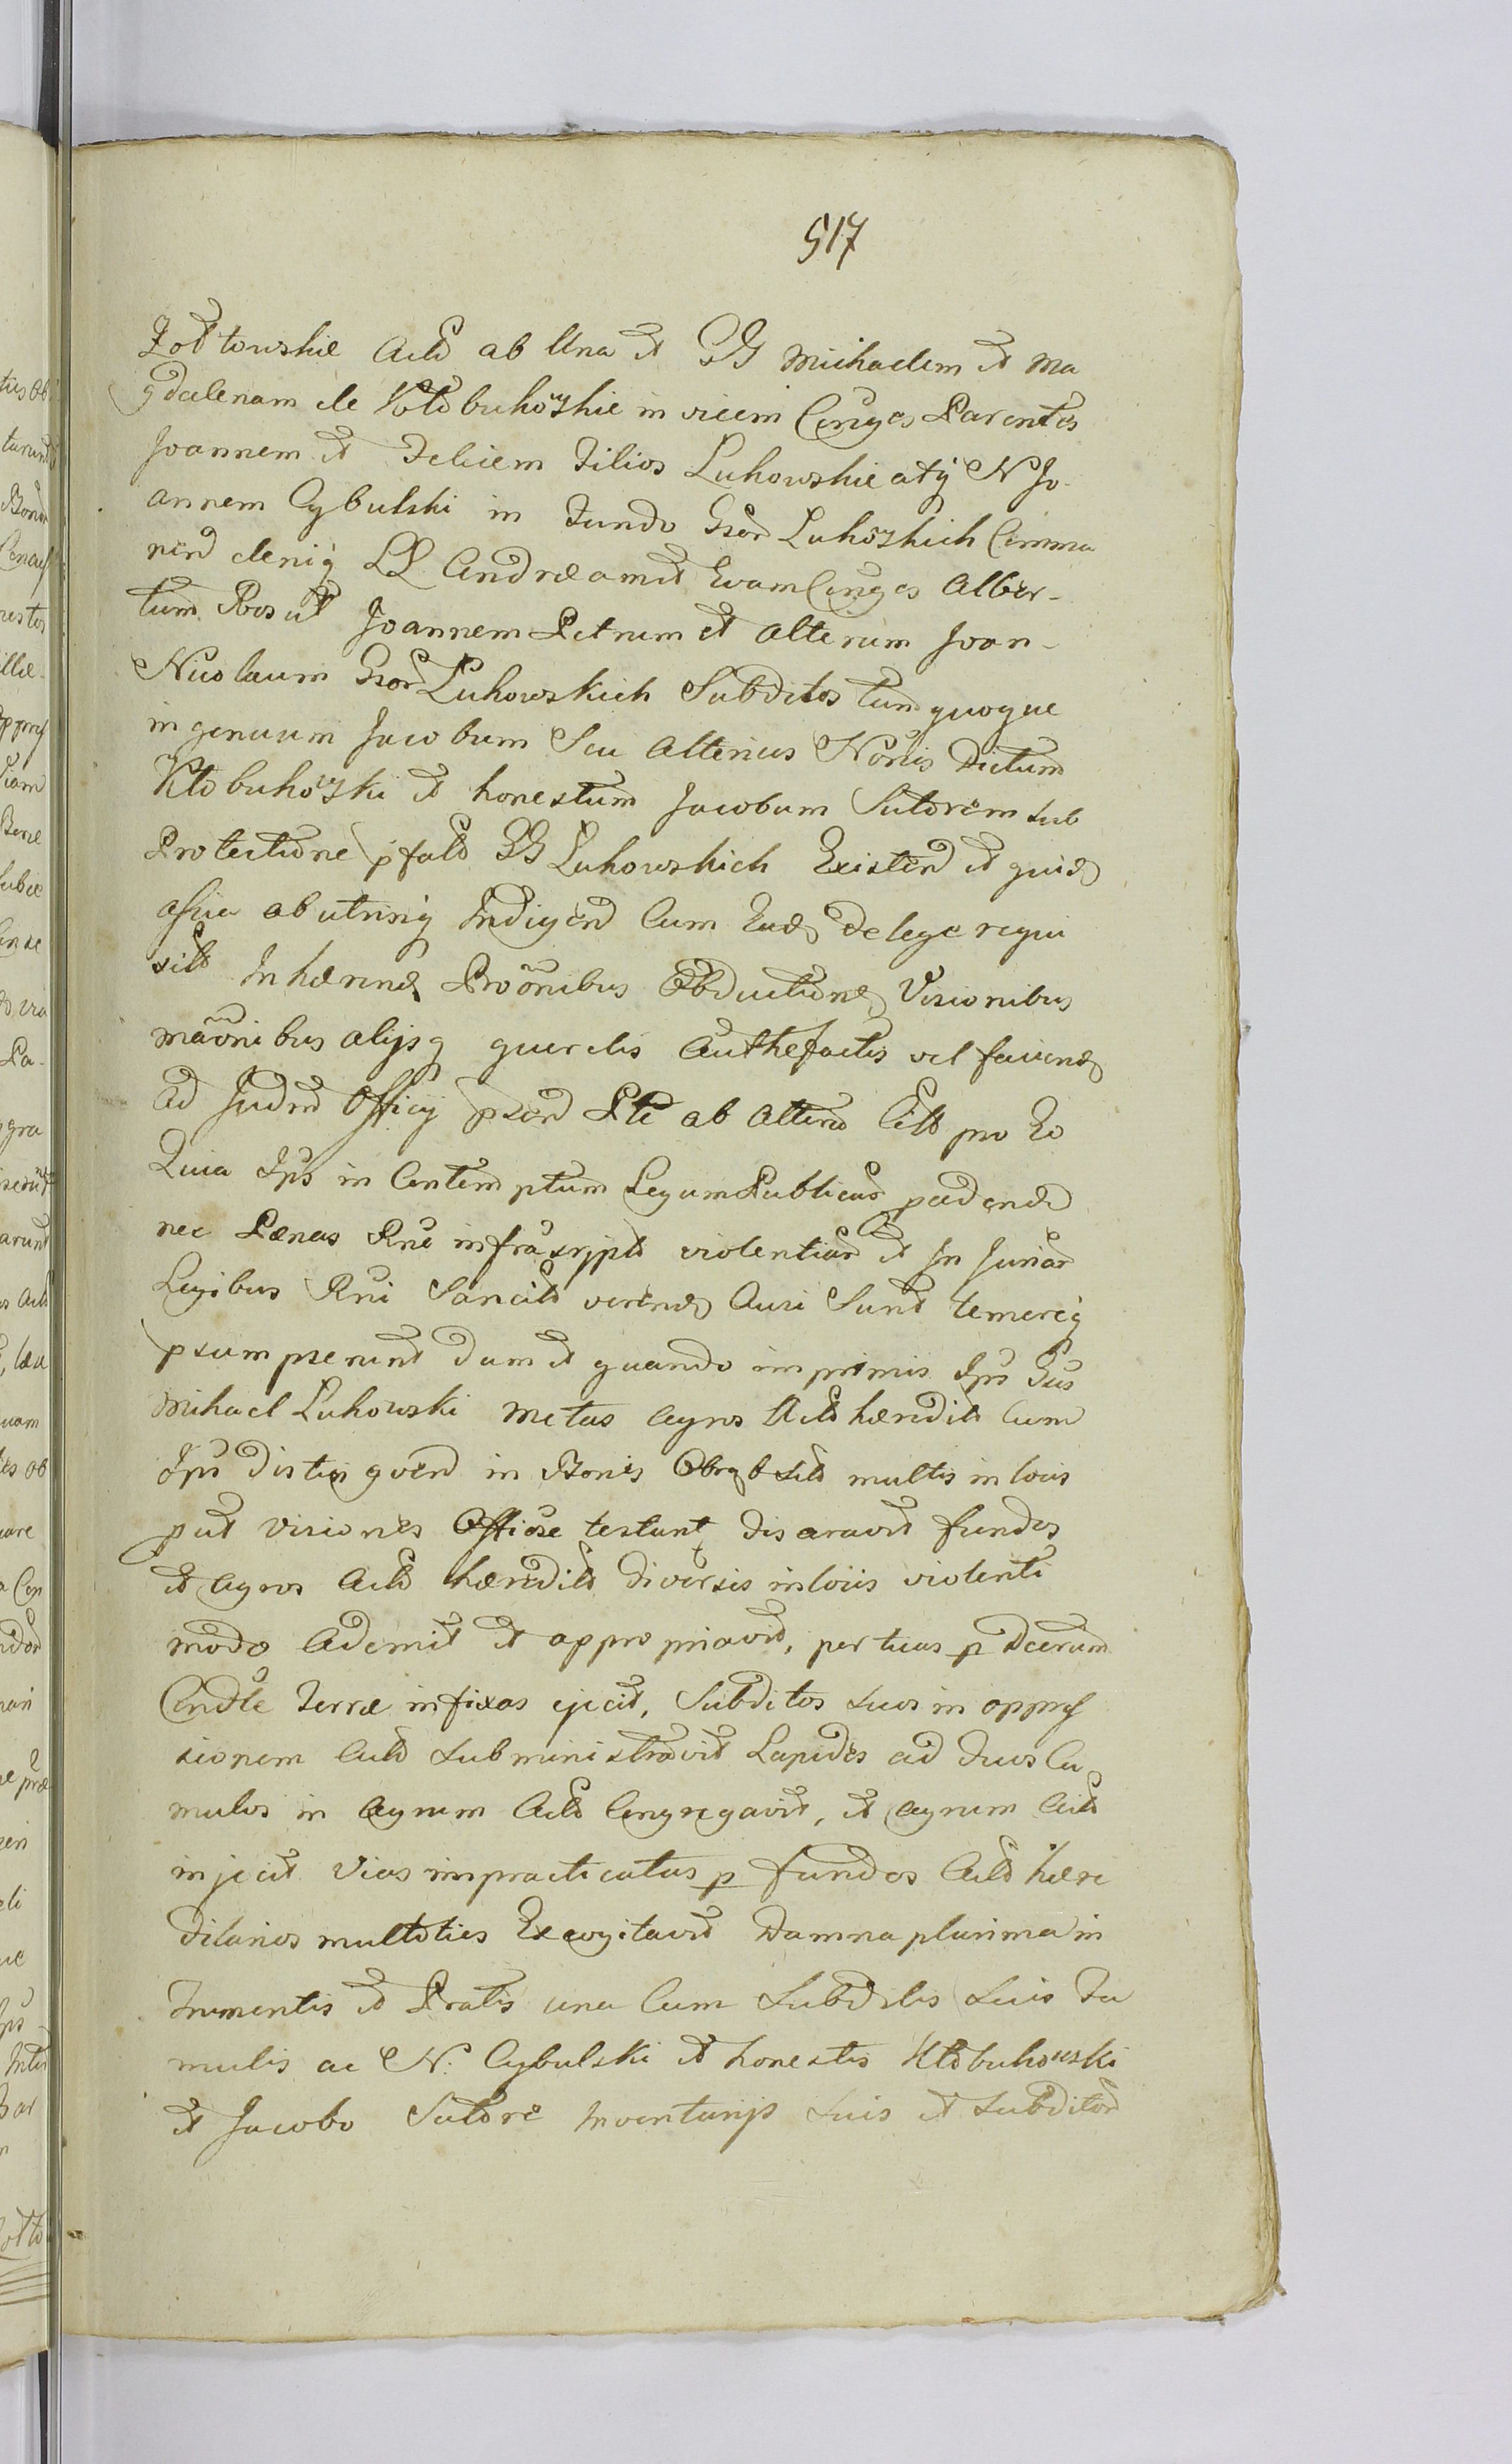 517
Żołtowskie Actō ab Una et GG Michaelem et Ma
gdalenam de Kłobukowskie in vicem Conjges Parentes
Joannem et Felicem Filios Lukowskie atq̃ N Jo-
annem Cybulski in Fundo Gsor̃ Lukowskich Comma
neñ deniq̃ LL Andreamet Evam Conjges Alber-
tum Posut Joannem Petrum et Alterum Joan-
Nicolaum Gsor̃ Lukowskich Subditos tum quoque
ingenuum Jacobum Seu Alterius Nōnis Dictum
Kłobukowski et honestum Jacobum Sutorem sub
Protectione p̃fatō GG Lukowskich Existeñ et quid
ab utrinq̃ Indigeñ Cum Eod de lege requi
sitō Inhæreñ Prōōnibus Obductioñ Visionibus
māōnibus alijsq̃ querelis Authefactis vel faciend
Ad Judm̃ Officij p̃señ Pte ab Altera Cittō pro Eo
Quia Ips̃ in Contemptum Legum Publicar̃
nec Pænas Rne infrascrptō violentiar̃ et Injuriar̃
Legibus Rni Sancitō verend Ausi Sunt temereq̃
p̃sumpserunt dum et quando imprimis Ips̃ Gus
Mihael Lukowski metas Agros Actō hæreditō Cum
Ips̃ distingueñ in Bonis multis in locis
put visiones Officiose testant disaravit fundos
et Agros Actō hæreditō diversis in locis violenti
modo Ademit et appropriavit, perticas p̃ Dcerum
Condle Terræ infixas ejecit, Subditos suos in oppres
sionem Actō subministravit Lapides ad duos Cu
mulos in Agrum Actō Congregavit, et Agrum Actō
injecit Vias impracticatas p fundos Actō hære
ditarios multoties Excogitavit Damna plurima in
Frumentis et Pratis una Cum Subditis Suis Fa
mulis ac N. Cybulski et honestis Kłobukowski
et Jacobo Sutore Inventarijs suis et Subditor̃